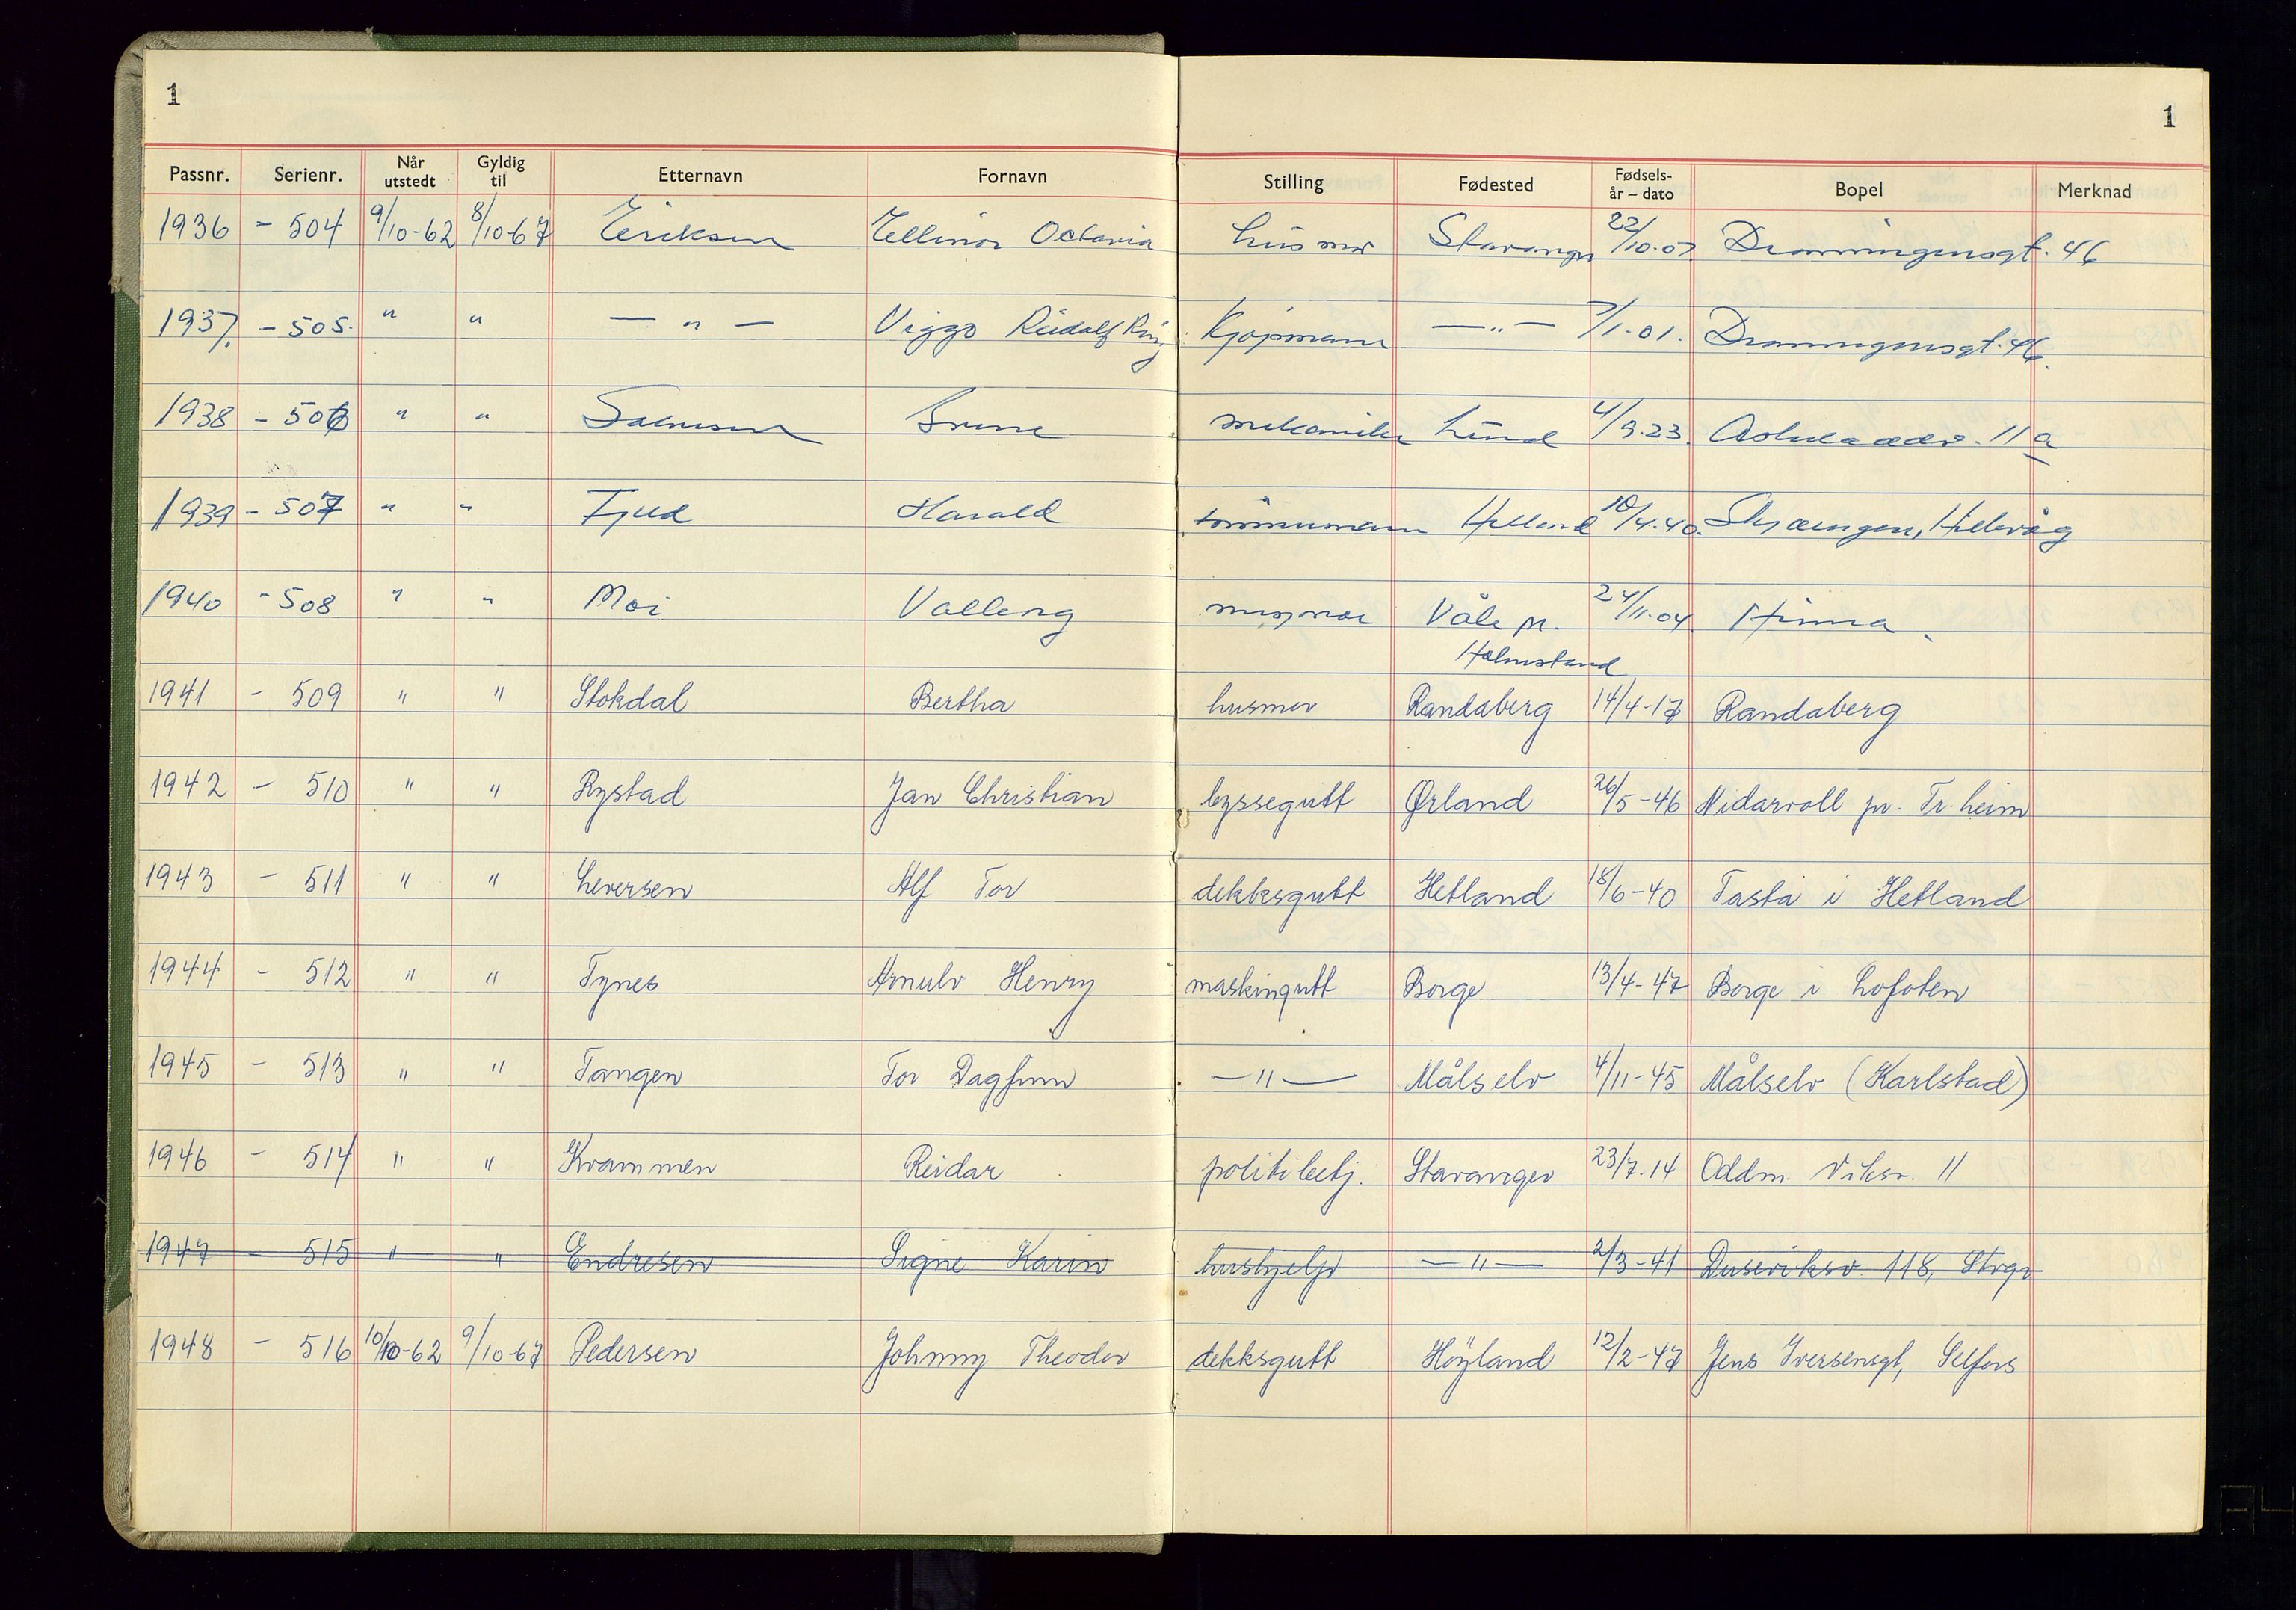 1 1
Passnr. Serienr. Når utstedt Gyldig til Etternavn Fornavn Stilling Fødested Fødsels- år – dato Bopel Merknad
1936 - 504 9/10-62 8/10-67 Eriksen Ellinor Octavia husmor Stavanger 22/10.07 Dronningensgt. 46
1937. - 505. " " — " — Viggo Rudolf Ring Kjøpmann — " — 7/1.01. Dronningensgt. 46.
1938 - 506 " " mekaniker Lund 4/9.23. 11 a
1939 - 507 " " Harald tømmermann Hetland 10/4.40. Hillevåg
1940 - 508 " " Moi Valleng Våle pr. Holmstand 24/11.04. Hinna.
1941 - 509 " " Stokdal Bertha husmor Randaberg 14/4-17 Randaberg
1942 - 510 " " Rystad Jan Christian byssegutt Ørland 26/5-46 Nidarvoll pr. Tr.heim
1943 - 511 " " Leversen Alf Tor dekksgutt Hetland 18/6-40 Tasta i Hetland
1944 - 512 " " Tynes Arnulv Henry maskingutt Borge 13/4-47 Borge i Lofoten
1945 - 513 " " Tangen Tor Dagfinn — " — Målselv 4/11-45 Målselv (Karlstad)
1946 - 514 " " Kvammen Reidar politibetj. Stavanger 23/7.14 Oddm. Viksv. 11
1947 - 515 " " Endresen Signe Karin hushjelp — " — 2/3-41 Duseviksv. 118, Stvgr
1948 - 516 10/10-62 9/10-67 Pedersen Johnny Theodor dekksgutt Höyland 12/2-47 Jens Iversensgt, Selfors